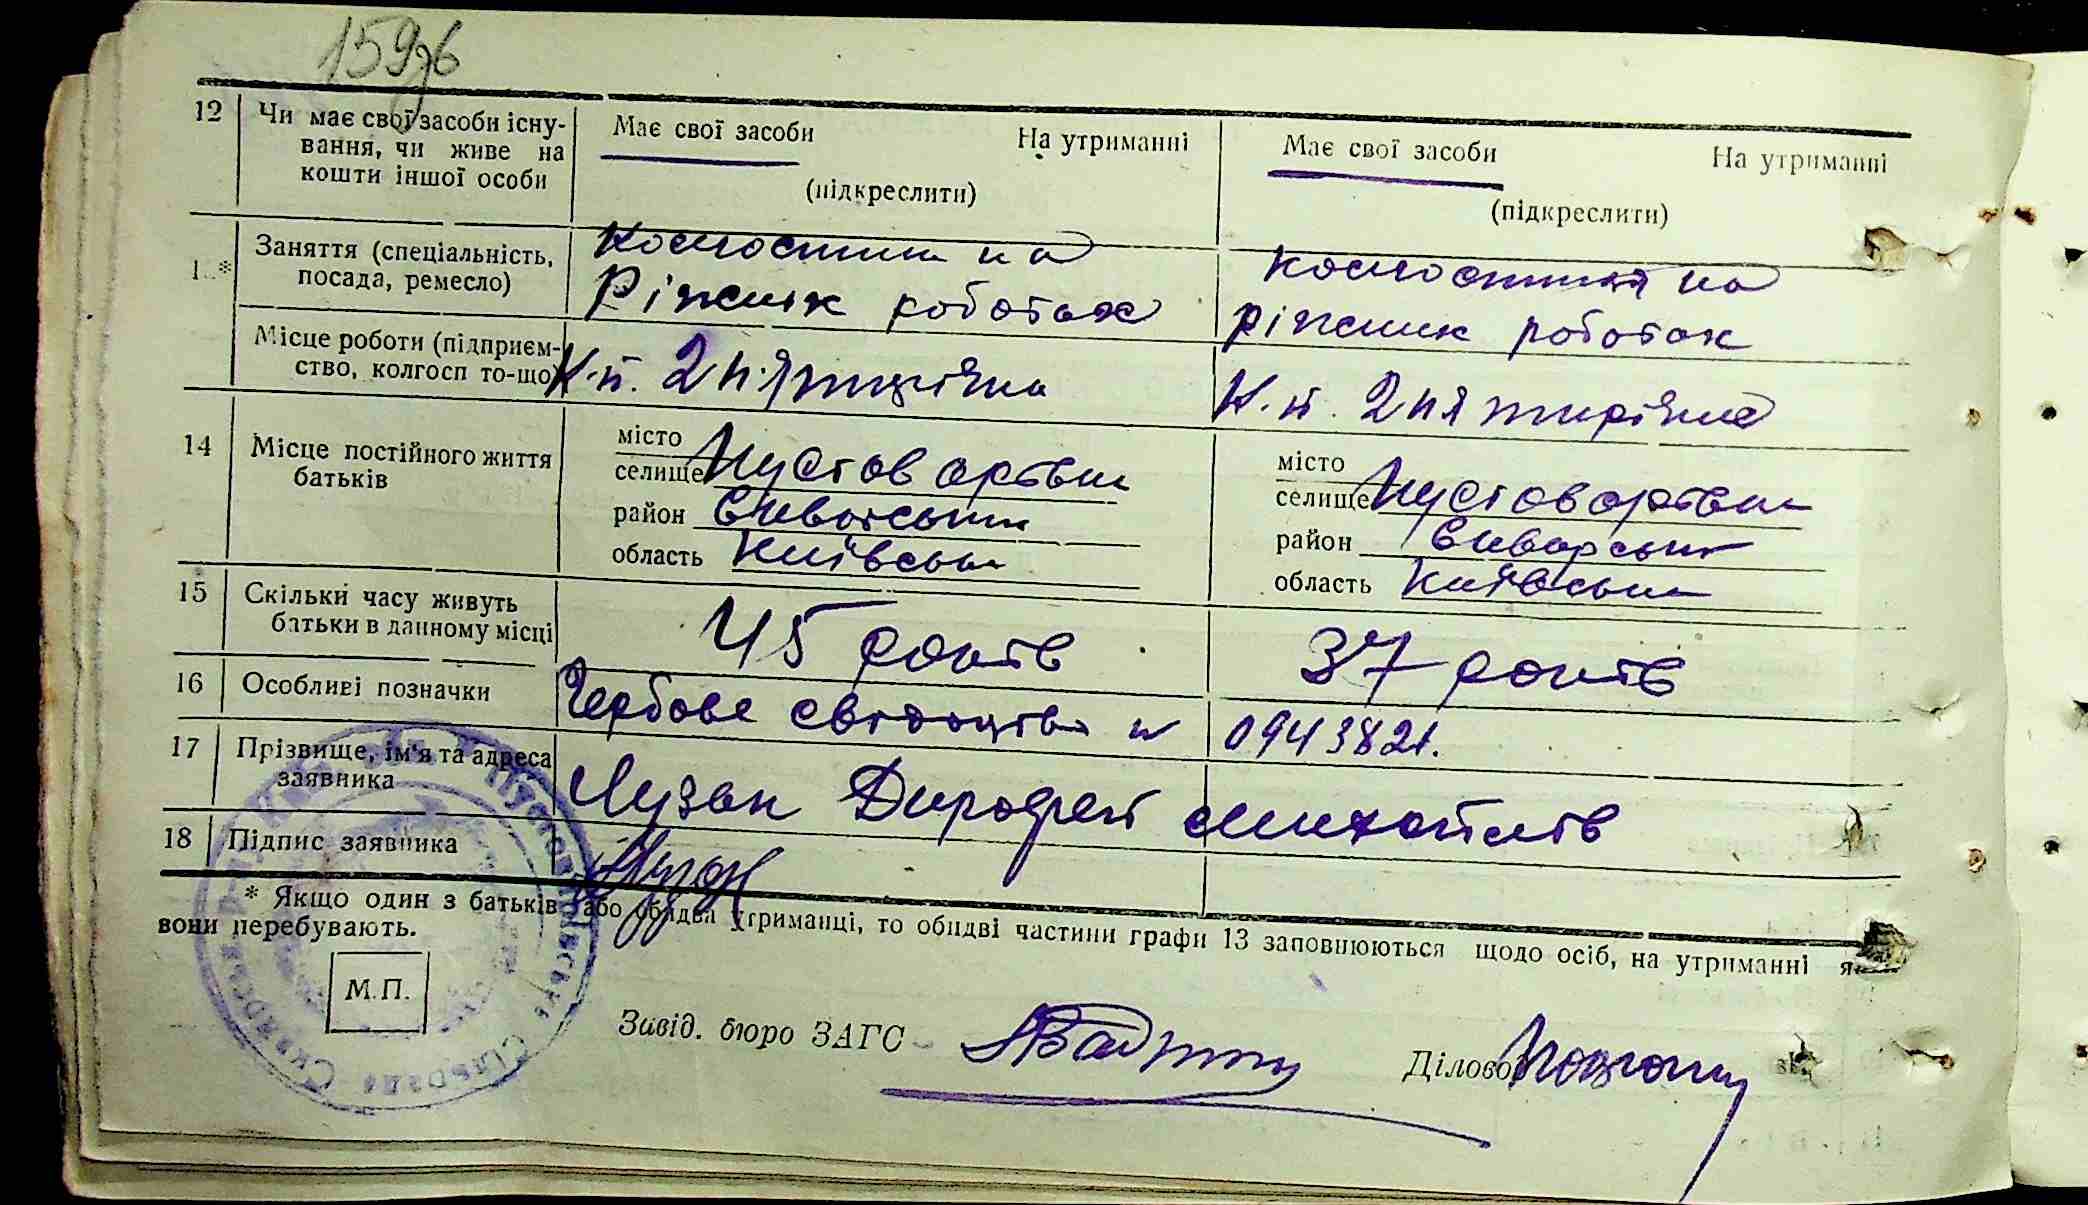 159зб
12 Чи має свої засоби існу- Має свої засоби На утриманні Має свої засоби На утриманні
вання, чи живе на
кошти іншої особи (підкреслити) (підкреслити)
Заняття (спеціальність, колгоспник на колгоспниця на
посада, ремесло) Ріжних роботах ріжних роботах
Місце роботи (підприєм- К-п. 2 п'ятирічка К.п. 2 п'ятирічка
ство, колгосп то-що)
14 Місце постійного життя місто місто
батьків селище Пустоварівка селище Пустоварівка
район Сквирський район Сквирський
область Київська область Київська
15 Скільки часу живуть 45 років 37 років
батьки в данному місці
16 Особливі позначки Гербове свідоцтво № 0943821.
17 Прізвище, ім'я та адреса
заявника Лузан Дорофей Михайлів
18 Підпис заявника Лузан
* Якщо один з батьків або обидва утриманці, то обидві частини графи 13 заповнюються щодо осіб, на утриманні я
вони перебувають.
М.П.
Завід. бюро ЗАГС
Ділово